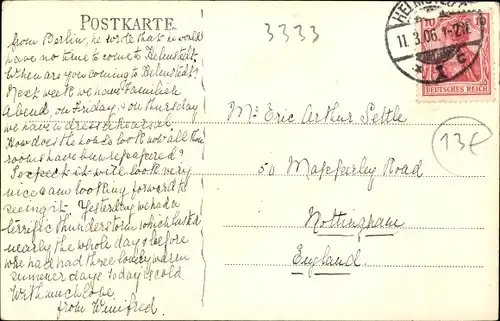 POSTKARTE
3333
HELMSTEDT
11.3.06. 1-2N.
10 10
DEUTSCHES REICH
13€
from Berlin, he wrote that he would
have no time to come to Helmstedt.
When are you coming to Helmstedt?
Next week we have Familien
Abend, on Friday & on Thursday
we have a dress rehearsal.
How does the house look now all the
rooms have been repapered?
I expect it will look very
nice & am looking forward to
seeing it. Yesterday we had a
terrific thunderstorm which lasted
nearly the whole day & before
we had had three lovely warm
summer days. Today is cold.
With much love
from Winifred.
Mr. Eric Arthur Settle
50 Mapperley Road
Nottingham
England.